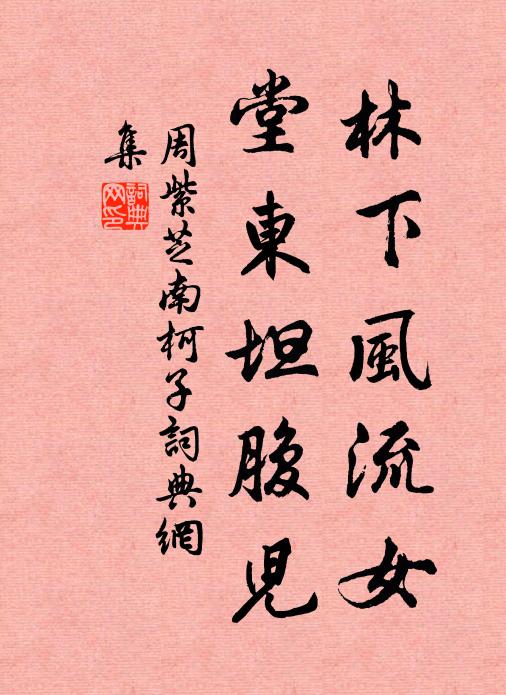 林下風流女
堂東坦腹兒
周紫芝南柯子詞典網
集
詞典网印